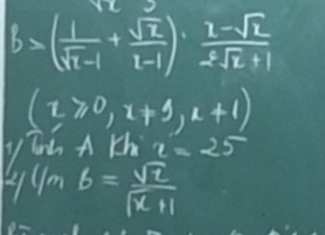 √x 3
B = (1/(√x-1) + √x/(x-1)) · (x-√x)/(2√x+1)
(x ≥ 0, x ≠ 9, x ≠ 1)
1/ Tính A khi x = 25
2/ C/m B = √x/(√x+1)